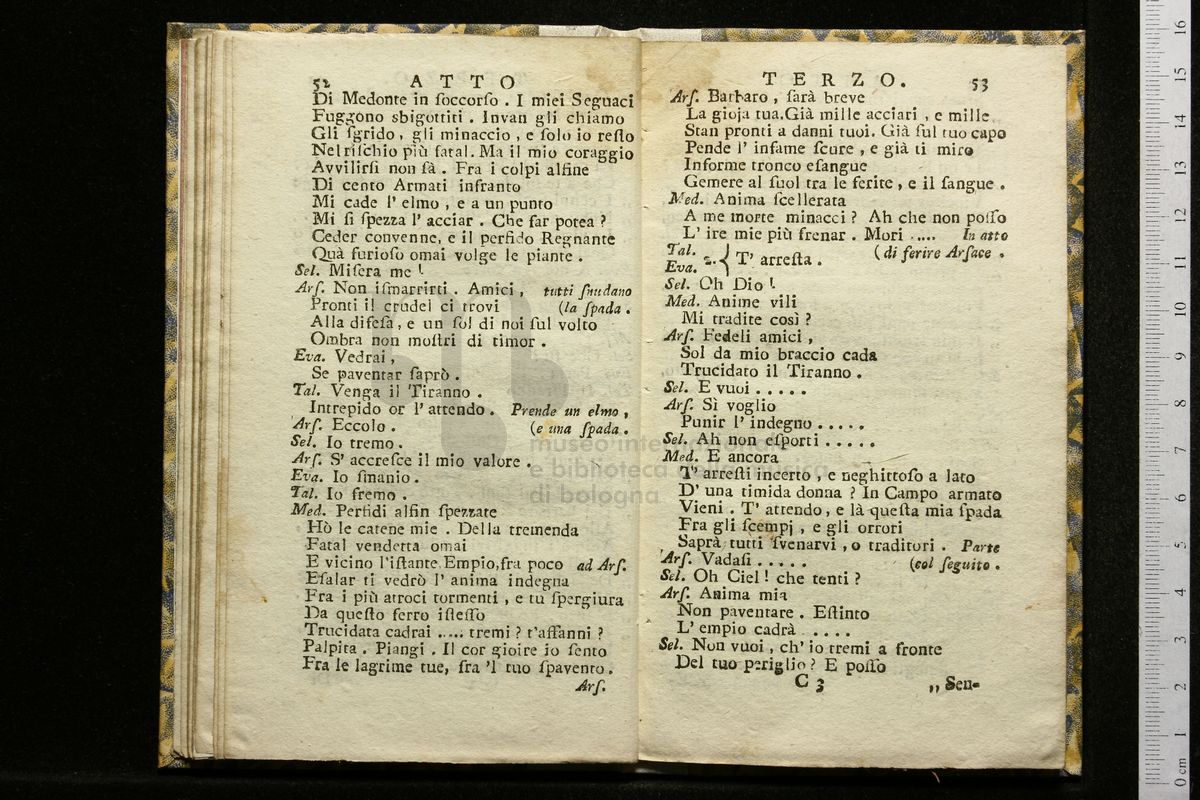 52 ATTO
Di Medonte in ſoccorſo . I miei Seguaci
Fuggono sbigottiti . Invan gli chiamo
Gli ſgrido , gli minaccio , e ſolo io reſto
Nel riſchio più fatal . Ma il mio coraggio
Avvilirſi non ſà . Fra i colpi alfine
Di cento Armati infranto
Mi cade l' elmo , e a un punto
Mi ſi ſpezza l' acciar . Che far potea ?
Ceder convenne, e il perfido Regnante
Quà furioſo omai volge le piante .
Sel. Miſera me !
Arſ. Non iſmarrirti . Amici , tutti ſnudano
Pronti il crudel ci trovi (la ſpada .
Alla difeſa , e un ſol di noi ſul volto
Ombra non moſtri di timor .
Eva. Vedrai ,
Se paventar ſaprò .
Tal. Venga il Tiranno .
Intrepido or l' attendo . Prende un elmo ,
Arſ. Eccolo . (e una ſpada .
Sel. Io tremo .
Arſ. S' accreſce il mio valore .
Eva. Io ſmanio .
Tal. Io fremo .
Med. Perfidi alfin ſpezzate
Hò le catene mie . Della tremenda
Fatal vendetta omai
E vicino l'iſtante. Empio, fra poco ad Arſ.
Eſalar ti vedrò l' anima indegna
Fra i più atroci tormenti , e tu ſpergiura
Da queſto ferro iſteſſo
Trucidata cadrai ..... tremi ? t'affanni ?
Palpita . Piangi . Il cor gioire io ſento
Fra le lagrime tue, fra 'l tuo ſpavento .
Arſ.
TERZO. 53
Arſ. Barbaro , ſarà breve
La gioja tua. Già mille acciari , e mille
Stan pronti a danni tuoi. Già ſul tuo capo
Pende l' infame ſcure , e già ti miro
Informe tronco eſangue
Gemere al ſuol tra le ferite , e il ſangue .
Med. Anima ſcellerata
A me morte minacci ? Ah che non poſſo
L' ire mie più frenar . Mori ..... In atto
(di ferire Arſace .
Tal.
Eva. 2. { T' arreſta .
Sel. Oh Dio !
Med. Anime vili
Mi tradite così ?
Arſ. Fedeli amici ,
Sol da mio braccio cada
Trucidato il Tiranno .
Sel. E vuoi .....
Arſ. Sì voglio
Punir l' indegno .....
Sel. Ah non eſporti .....
Med. E ancora
T' arreſti incerto , e neghittoſo a lato
D' una timida donna ? In Campo armato
Vieni . T' attendo , e là queſta mia ſpada
Fra gli ſcempj , e gli orrori
Saprà tutti ſvenarvi , o traditori . Parte
Arſ. Vadaſi ..... (col ſeguito .
Sel. Oh Ciel ! che tenti ?
Arſ. Anima mia
Non paventare . Eſtinto
L' empio cadrà ....
Sel. Non vuoi , ch' io tremi a fronte
Del tuo periglio ? E poſſo
C 3 ,, Sen-
museo internazionale
e biblioteca della musica
di bologna
0 cm 1 2 3 4 5 6 7 8 9 10 11 12 13 14 15 16